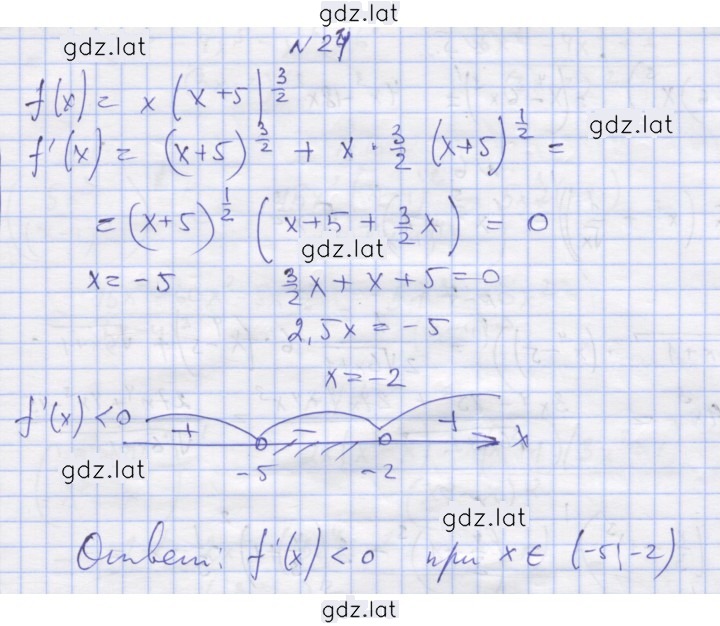 gdz.lat
gdz.lat
№ 24
f(x) = x (x+5)^{3/2}
gdz.lat
f'(x) = (x+5)^{3/2} + x · 3/2 (x+5)^{1/2} =
= (x+5)^{1/2} (x+5 + 3/2 x) = 0
gdz.lat
x = -5 3/2 x + x + 5 = 0
2,5x = -5
x = -2
f'(x) < 0 + - + x
gdz.lat
-5 -2
gdz.lat
Ответ: f'(x) < 0 при x ∈ (-5; -2)
gdz.lat